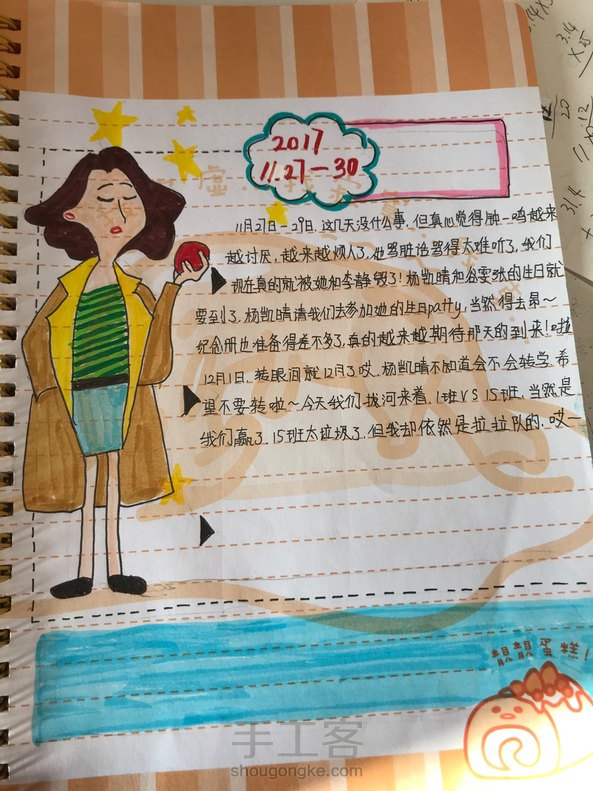 2017
11.27—30
11月27日-29日.这几天没什么事,但真心觉得 一鸣越来
越讨厌,越来越烦人了,他骂脏话骂得太难听了,我们
现在真的就被她和李静毁了!杨凯晴和谷雯张的生日就
要到了.杨凯晴请我们去参加她的生日patty,当然得去昂~
纪念册也准备得差不多了,真的越来越期待那天的到来!啦
12月1日,转眼间就12月3哎.杨凯晴不知道会不会转学 希
望不要转啦~今天我们拔河来着.1班VS 15班,当然是
我们赢了.15班太垃圾了.但我却依然是拉拉队的.哎一
靓靓蛋糕!
手工客
shougongke.com
3.14
20
12
3.14